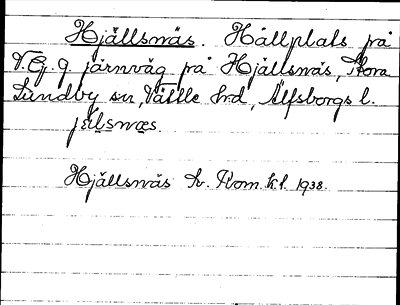 Hjällsnäs. Hållplats på
V.G.g. järnväg på Hjällsnäs, Stora
Lundby sn, Vättle hrd, Älfsborgs l.
jälsnæs.
Hjällsnäs Sv. Kom. kl. 1938.